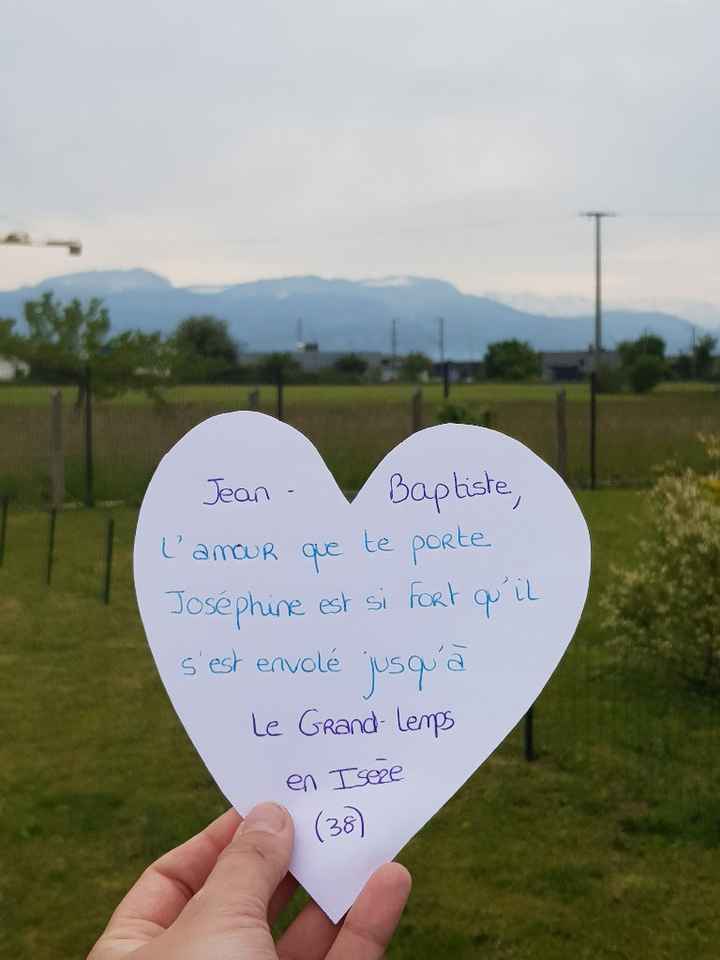 Jean - Baptiste,
L'amour que te porte
Joséphine est si fort qu'il
s'est envolé jusqu'à
Le Grand-Lemps
en Isère
(38)